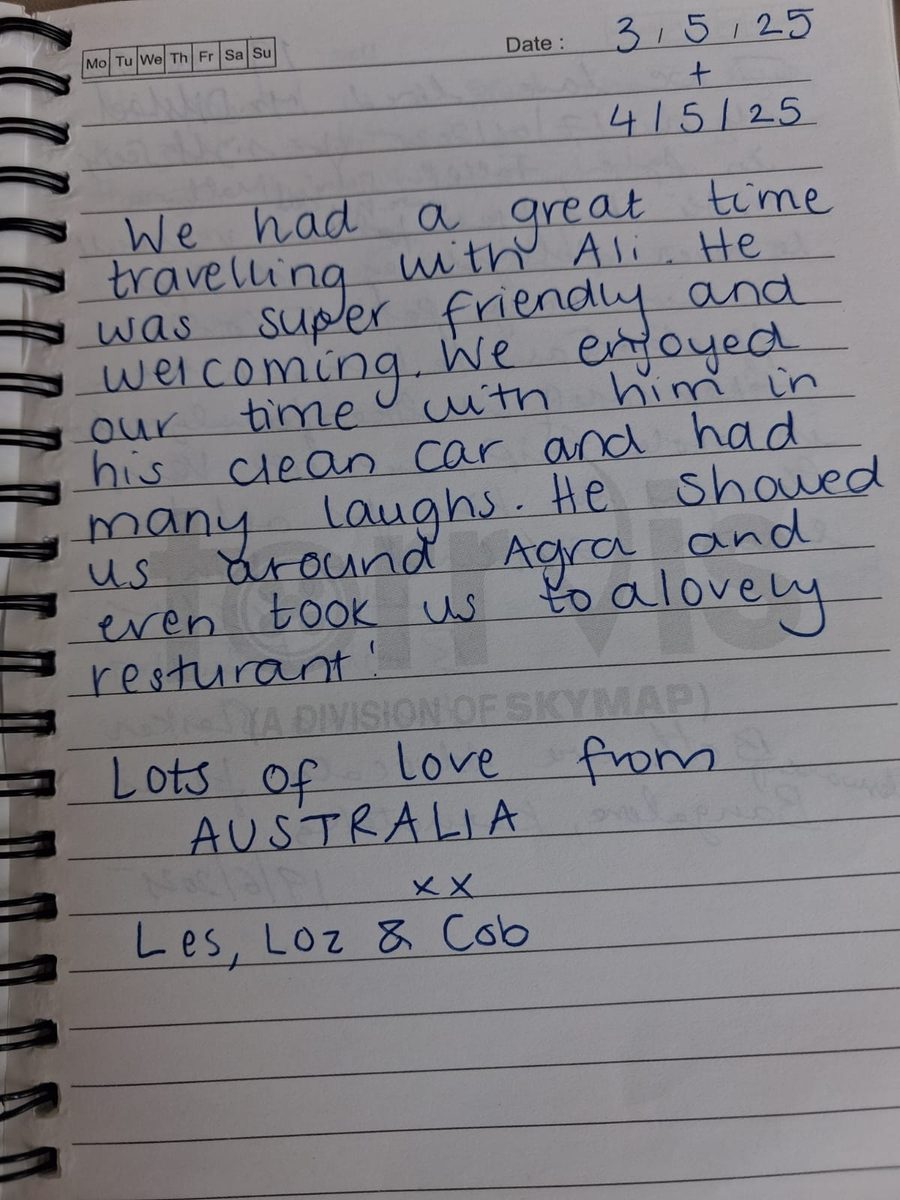 Mo Tu We Th Fr Sa Su
Date : 3/5/25
+
4/5/25
We had a great time
travelling with Ali. He
was super friendly and
welcoming. We enjoyed
our time with him in
his clean car and had
many laughs. He showed
us around Agra and
even took us to a lovely
resturant!
(A DIVISION OF SKYMAP)
Lots of love from
AUSTRALIA
xx
Les, Loz & Cob